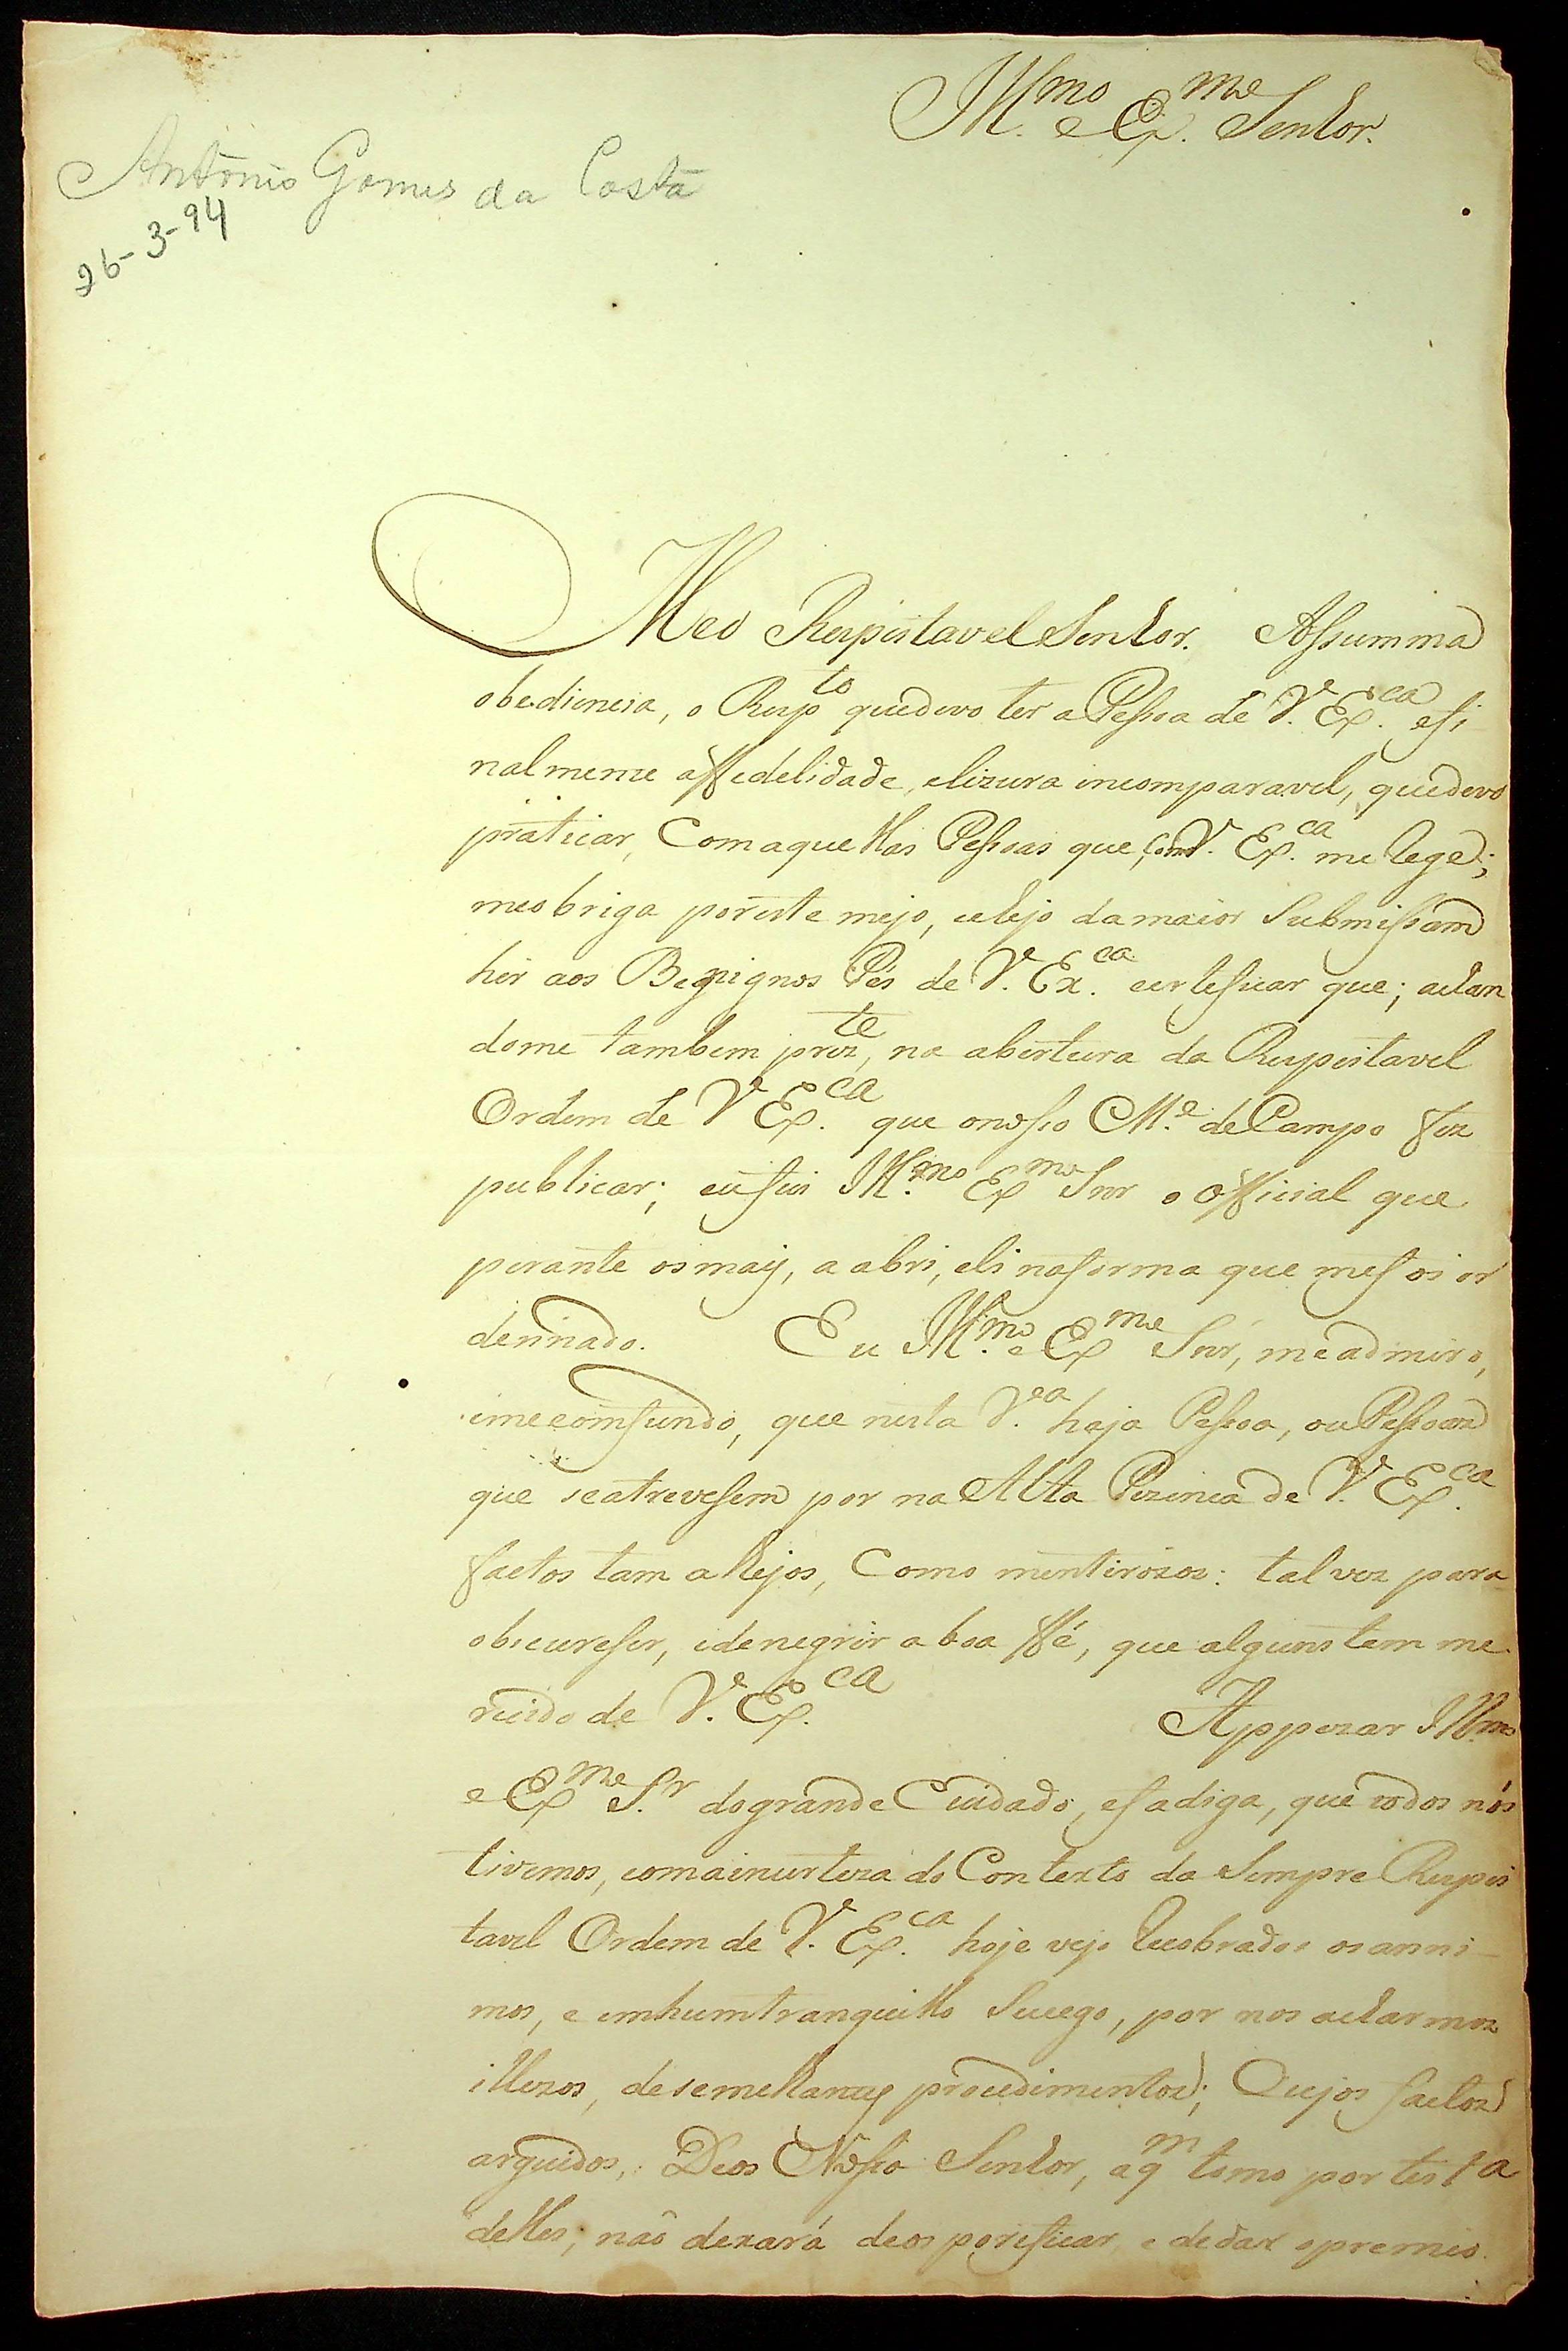 Ill.mo e Ex.mo Senhor.
Antônio Gomes da Costa
26-3-94
Meo Respeitavel Senhor. Assumma
obediencia, o Resp.to quedevo ter a Pessoa de V. Ex.ca efi
nalmente affedelidade, elizura incomparavel, quedevo
praticar, Comaquellas Pessoas que, como V. Ex.ca me lege;
meobriga poreste mejo, echejo damaior Submissam
hir aos Benignos Pés de V. Ex.ca certeficar que; achan
dome tambem prez.te, na abertura da Respeitavel
Ordem de V Ex.ca que onosso M.e de Campo fez
publicar; eu fui Ill.mo Ex.mo Snr o official que
perante osmais, a abri, eli naforma que mefoi or
dennado. Eu Ill.mo e Ex.mo Snr, meadmiro,
emecomfundo, que nesta V.a haja Pessoa, ou Pessoas
que seatrevesem por na Alta Prezinca de V. Ex.ca
factos tam alhejos, Como mentirozos: talvez para
obscureser, edenegrir a boa ffé, que alguns tem me
recido de V. Ex.ca Appezar Ill.mo
e Ex.mo S.r dogrande Cuidado, efadiga, que todos nós
tivemos, comaincerteza do Contexto da Sempre Respei
tavel Ordem de V. Ex.ca hoje vejo Recobrados osanni-
mos, e emhumtranquillo Sucego, por nos acharmos
illezos, desemelhantes procedimentos; Cujos factos
arguidos, Deos Nosso Senhor, aq.m tomo por test.a
delles, não dexará deos poreficar, e dedar opremio